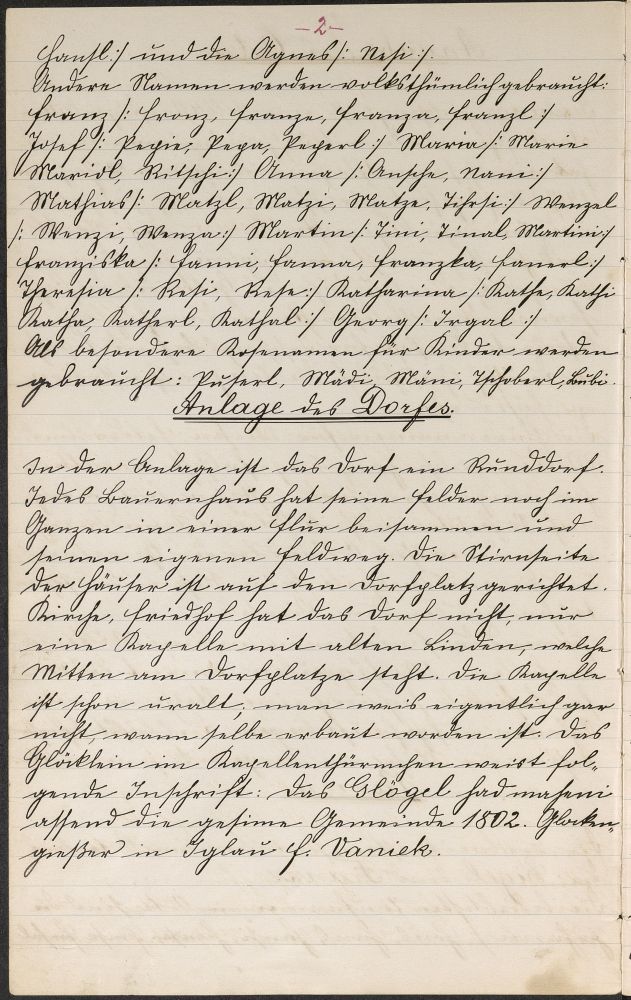 -2-
Hansl :/ und die Agnes /: Nesi :/.
Andere Namen werden volksthümlich gebraucht:
Franz /: Fronz, Franze, Franza, Franzl :/
Josef /: Pepie, Pepa, Peperl :/ Maria /: Marie
Mariol, Ritschi :/ Anna /: Ansche, Nani :/
Mathias /: Matzl, Matzi, Matze, Tihsi :/ Wenzel
/: Wenzi, Wenza :/ Martin /: Tini, Tinal, Martini :/
Franziska /: Fanni, Fanna, Franzka, Fanerl :/
Theresia /: Resi, Rese :/ Katharina /: Kathe, Kathi
Katha, Katherl, Kathal :/ Georg /: Irgal :/
Als besondere Kosenamen für Kinder werden
gebraucht: Puserl, Mädi, Mäni, Tschoberl, Bubi.
Anlage des Dorfes.
In der Anlage ist das Dorf ein Runddorf.
Jedes Bauernhaus hat seine Felder noch im
Ganzen in einer Flur beisammen und
seinen eigenen Feldweg. Die Stirnseite
der Häuser ist auf den Dorfplatz gerichtet.
Kirche, Friedhof hat das Dorf nicht, nur
eine Kapelle mit alten Linden, welche
Mitten am Dorfplatze steht. Die Kapelle
ist schon uralt; man weis eigentlich gar
nicht, wann selbe erbaut worden ist. Das
Glöcklein im Kapellenthürmchen weist fol-
gende Inschrift: Das Glögel had maheni
assend die gesime Gemeinde 1802. Glocken-
gießer in Iglau F. Vaniek.